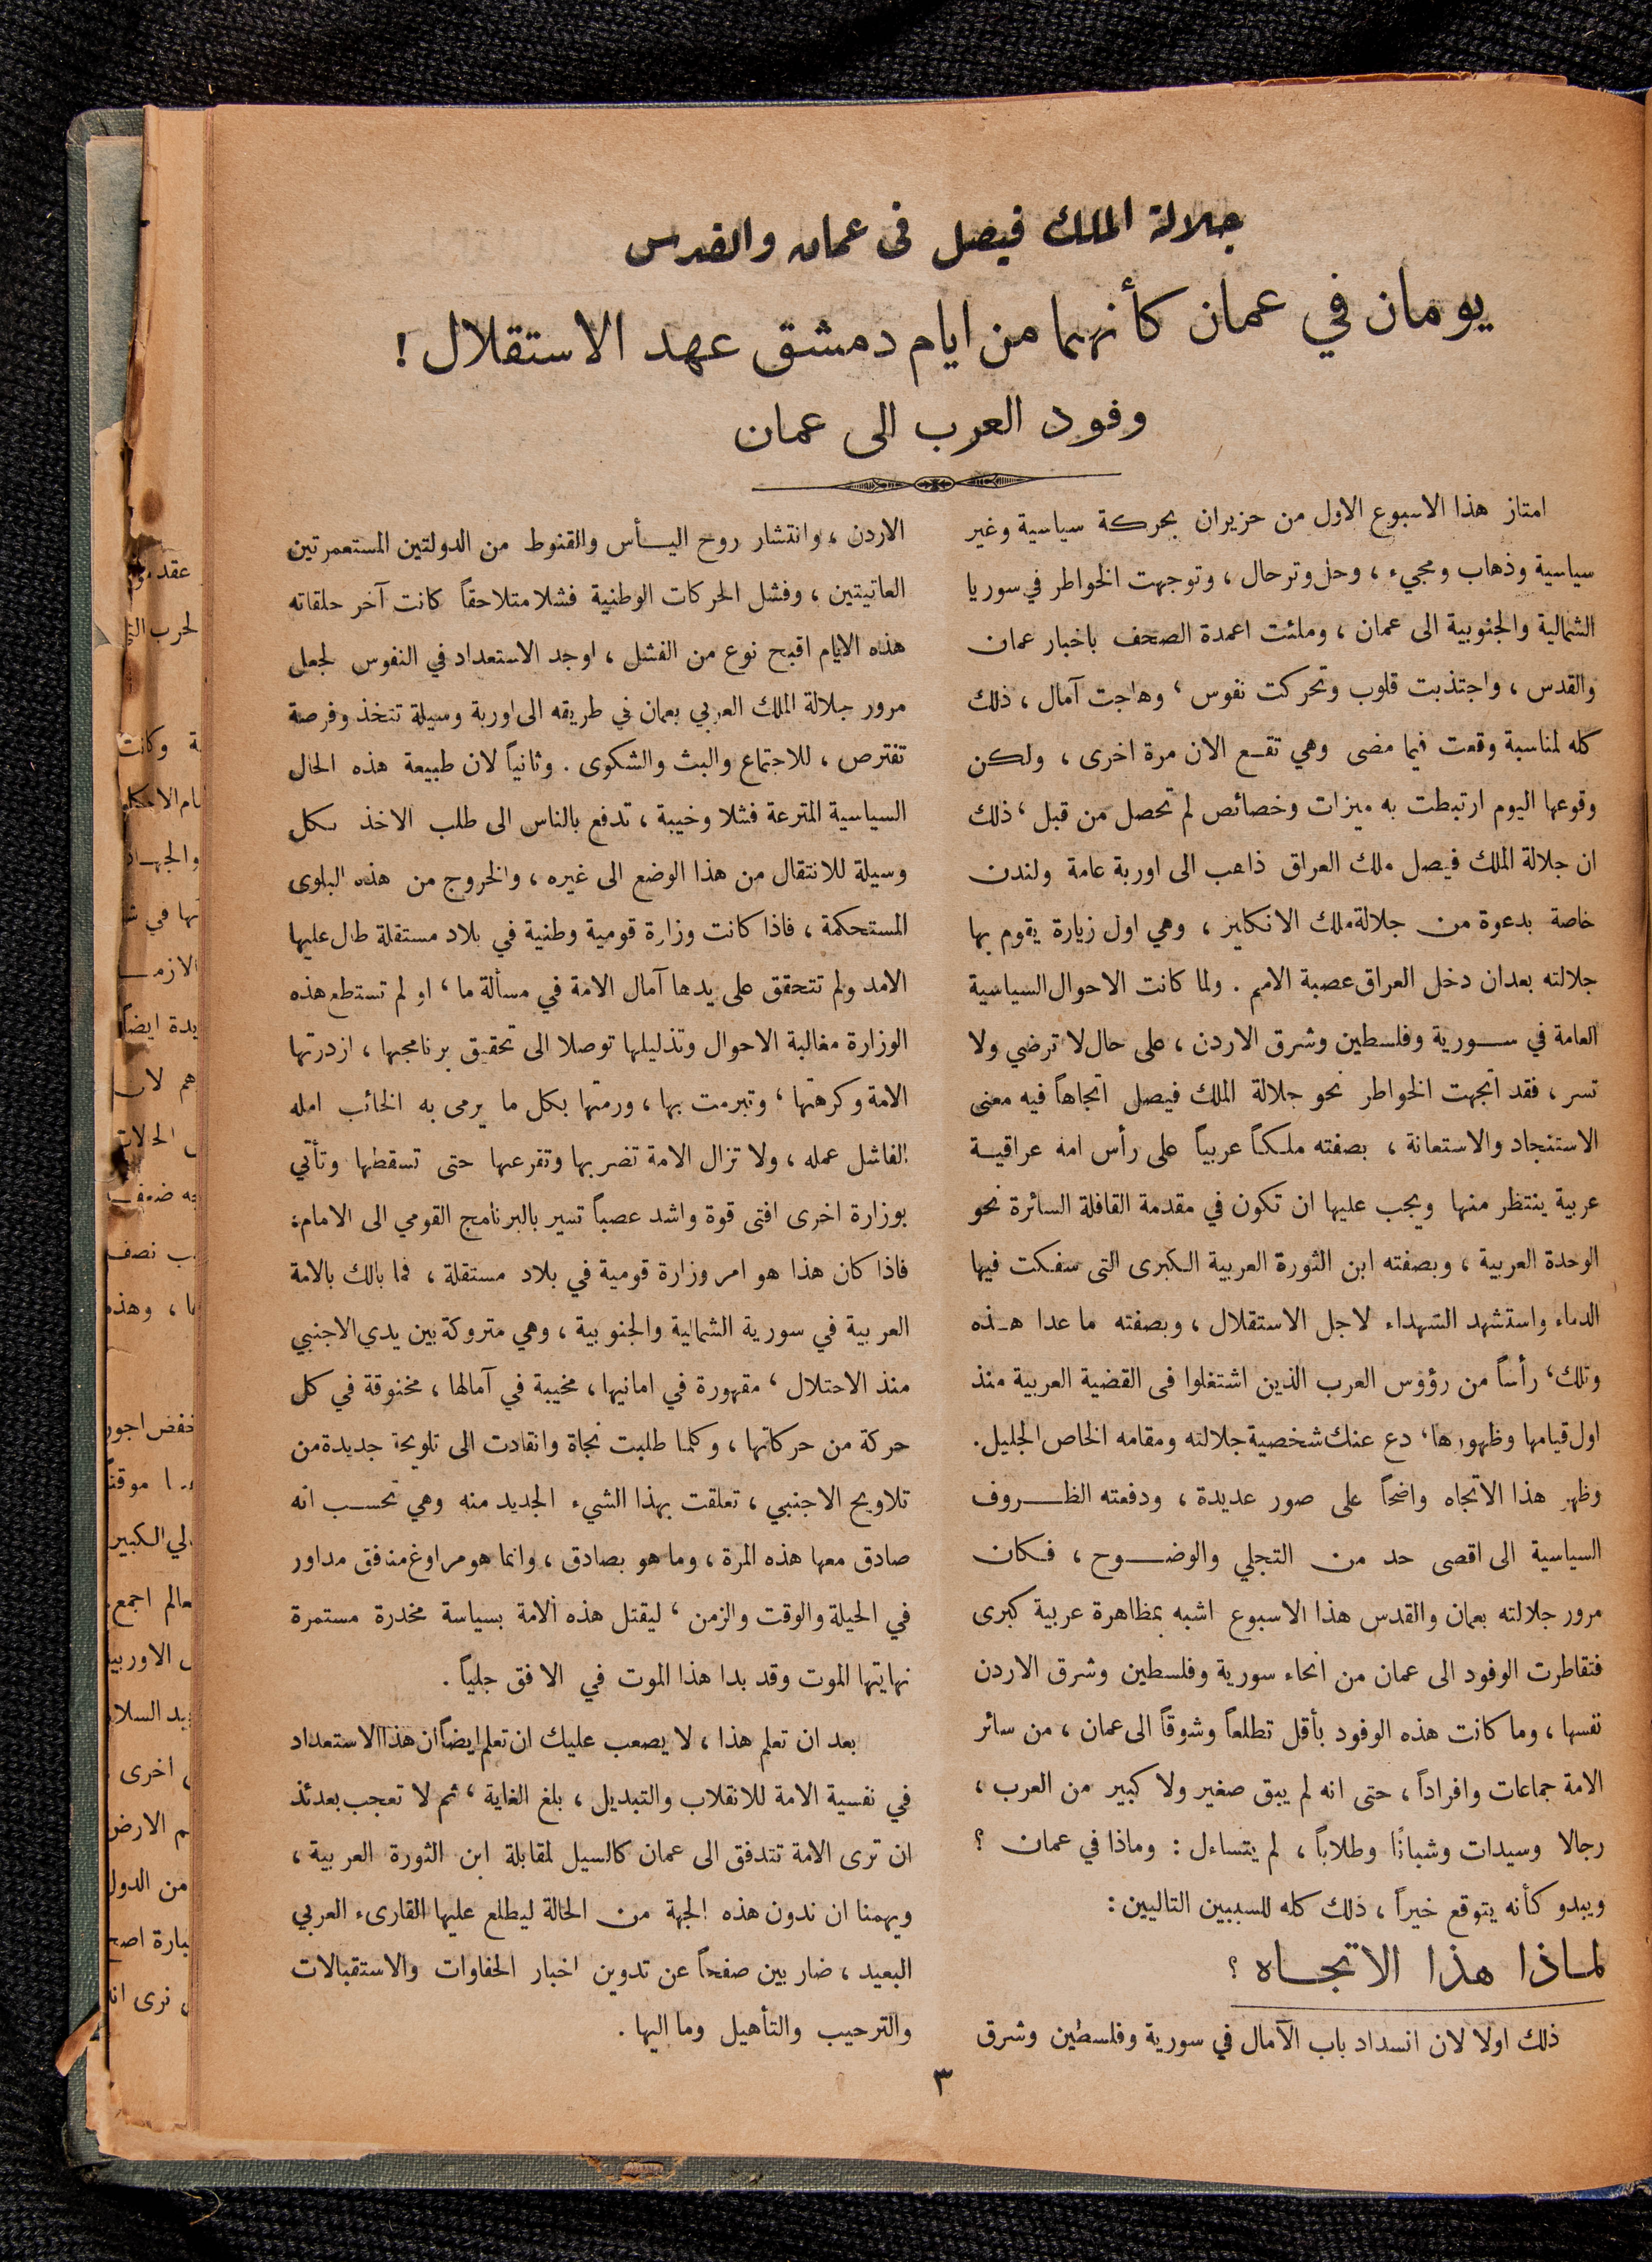 جلالة الملك فيصل فى عمان والقدس
يومان في عمان كأنهما من ايام دمشق عهد الاستقلال !
وفود العرب الى عمان
امتاز هذا الاسبوع الاول من حزيران بحركة سياسية وغير
سياسية وذهاب ومجيء ، وحل وترحال ، وتوجهت الخواطر في سوريا
الشمالية والجنوبية الى عمان ، وملئت اعمدة الصحف باخبار عمان
والقدس ، واجتذبت قلوب وتحركت نفوس ، وهاجت آمال ، ذلك
كله لمناسبة وقعت فيما مضى وهي تقع الان مرة اخرى ، ولكن
وقوعها اليوم ارتبطت به ميزات وخصائص لم تحصل من قبل ، ذلك
ان جلالة الملك فيصل ملك العراق ذاهب الى اوربة عامة ولندن
خاصة بدعوة من جلالة ملك الانكليز ، وهي اول زيارة يقوم بها
جلالته بعدان دخل العراق عصبة الامم . ولما كانت الاحوال السياسية
العامة في سورية وفلسطين وشرق الاردن ، على حال لا ترضي ولا
تسر ، فقد اتجهت الخواطر نحو جلالة الملك فيصل اتجاهاً فيه معنى
الاستنجاد والاستعانة ، بصفته ملكاً عربياً على رأس امة عراقية
عربية ينتظر منها ويجب عليها ان تكون في مقدمة القافلة السائرة نحو
الوحدة العربية ، وبصفته ابن الثورة العربية الكبرى التى سفكت فيها
الدماء واستشهد الشهداء لاجل الاستقلال ، وبصفته ما عدا هذه
وتلك ، رأساً من رؤوس العرب الذين اشتغلوا فى القضية العربية منذ
اول قيامها وظهورها ، دع عنك شخصية جلالته ومقامه الخاص الجليل.
وظهر هذا الاتجاه واضحاً على صور عديدة ، ودفعته الظروف
السياسية الى اقصى حد من التجلي والوضوح ، فكان
مرور جلالته بعمان والقدس هذا الاسبوع اشبه بمظاهرة عربية كبرى
فتقاطرت الوفود الى عمان من انحاء سورية وفلسطين وشرق الاردن
نفسها ، وما كانت هذه الوفود بأقل تطلعاً وشوقاً الى عمان ، من سائر
الامة جماعات وافراداً ، حتى انه لم يبق صغير ولا كبير من العرب ،
رجالا وسيدات وشباناً وطلاباً ، لم يتساءل : وماذا في عمان ؟
ويبدو كأنه يتوقع خيراً ، ذلك كله للسببين التاليين :
لماذا هذا الاتجاه ؟
ذلك اولا لان انسداد باب الآمال في سورية وفلسطين وشرق
الاردن ، وانتشار روح اليأس والقنوط من الدولتين المستعمرتين
العاتيتين ، وفشل الحركات الوطنية فشلا متلاحقاً كانت آخر حلقاته
هذه الايام اقبح نوع من الفشل ، اوجد الاستعداد في النفوس لجعل
مرور جلالة الملك العربي بعمان في طريقه الى اوربة وسيلة تتخذ وفرصة
تفترص ، للاجتماع والبث والشكوى . وثانياً لان طبيعة هذه الحال
السياسية المترعة فشلا وخيبة ، تدفع بالناس الى طلب الاخذ بكل
وسيلة للانتقال من هذا الوضع الى غيره ، والخروج من هذه البلوى
المستحكمة ، فاذا كانت وزارة قومية وطنية في بلاد مستقلة طال عليها
الامد ولم تتحقق على يدها آمال الامة في مسألة ما ، او لم تستطع هذه
الوزارة مغالبة الاحوال وتذليلها توصلا الى تحقيق برنامجها ، ازدرتها
الامة وكرهتها ، وتبرمت بها ، ورمتها بكل ما يرمى به الخائب امله
الفاشل عمله ، ولا تزال الامة تضربها وتقرعها حتى تسقطها وتأتي
بوزارة اخرى افتى قوة واشد عصباً تسير بالبرنامج القومي الى الامام:
فاذا كان هذا هو امر وزارة قومية في بلاد مستقلة ، فما بالك بالامة
العربية في سورية الشمالية والجنوبية ، وهي متروكة بين يدي الاجنبي
منذ الاحتلال ، مقهورة في امانيها ، مخيبة في آمالها ، مخنوقة في كل
حركة من حركاتها ، وكلما طلبت نجاة وانقادت الى تلويحة جديدة من
تلاويح الاجنبي ، تعلقت بهذا الشيء الجديد منه وهي تحسب انه
صادق معها هذه المرة ، وما هو بصادق ، وانما هو مراوغ منافق مداور
في الحيلة والوقت والزمن ، ليقتل هذه الامة بسياسة مخدرة مستمرة
نهايتها الموت وقد بدا هذا الموت في الافق جلياً .
بعد ان تعلم هذا ، لا يصعب عليك ان تعلم ايضاً ان هذا الاستعداد
في نفسية الامة للانقلاب والتبديل ، بلغ الغاية ، ثم لا تعجب بعدئذ
ان ترى الامة تتدفق الى عمان كالسيل لمقابلة ابن الثورة العربية ،
ويهمنا ان ندون هذه الجهة من الحالة ليطلع عليها القارىء العربي
البعيد ، ضاربين صفحاً عن تدوين اخبار الحفاوات والاستقبالات
والترحيب والتأهيل وما اليها .
٣